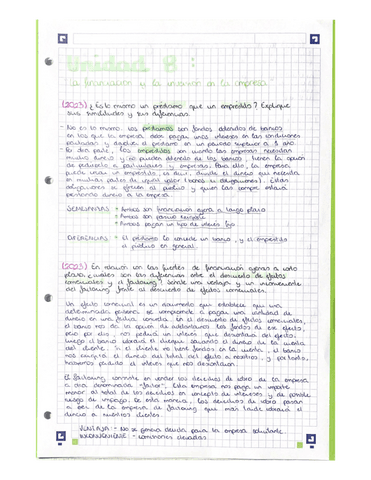 Unidad 8:
"La financiación y la inversión en la empresa"
(2023) ¿Es lo mismo un préstamo que un empréstito? Explique
sus similitudes y sus diferencias.
- No es lo mismo. Los préstamos son fondos obtenidos de bancos
en los que la empresa debe pagar unos intereses en las condiciones
pactadas y devolver el préstamo en un periodo superior a 1 año.
Por otra parte, los empréstitos son cuando las empresas necesitan
mucho dinero y no pueden obtenerlo de los bancos, tienen la opción
de pedírselo a particulares y empresas. Para ello, la empresa
puede emitir un empréstito, es decir, divide el dinero que necesita
en muchas partes de igual valor (bonos u obligaciones). Estas
obligaciones se ofrecen al público y quien las compre estará
prestando dinero a la empresa.
SEMEJANZAS - Ambos son financiación ajena a largo plazo
- Ambos son pasivo exigible
- Ambos pagan un tipo de interés fijo
DIFERENCIAS - El préstamo lo concede un banco, y el empréstito
el público en general.
(2023) En relación con las fuentes de financiación ajenas a corto
plazo, ¿cuáles son las diferencias entre el descuento de efectos
comerciales y el factoring? Señale una ventaja y un inconveniente
del factoring frente al descuento de efectos comerciales.
Un efecto comercial es un documento que establece que una
determinada persona se compromete a pagar una cantidad de
dinero en una fecha concreta. En el descuento de efectos comerciales,
el banco nos da la opción de adelantarnos los fondos de ese efecto,
pero por ello, nos pedirá un interés que descontará del efecto,
luego el banco cobrará el
del cliente. Si el cliente no tiene fondos en la cuenta, el banco
nos exigirá el dinero total del efecto a nosotros, y por tanto,
habremos perdido el interés que nos descontaron.
El factoring consiste en vender los derechos de cobro de la empresa
a otra denominada "factor". Esta empresa nos paga un importe
menor al total de los derechos en concepto de intereses y de posible
riesgo de impago. De esta manera, los derechos de cobro pasan
a ser de la empresa de factoring, que más tarde cobrará el
dinero a nuestros clientes.
VENTAJA - No se genera deuda para la empresa solicitante.
INCONVENIENTE - Comisiones elevadas.